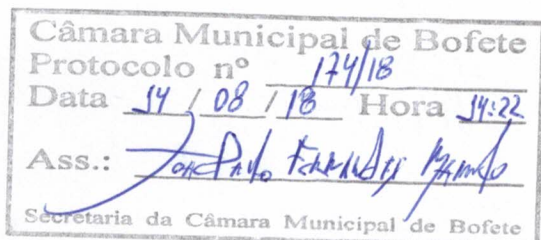 Câmara Municipal de Bofete
Protocolo nº 174/18
Data 14 / 08 / 18 Hora 14:22
Ass.: Paulo
Secretaria da Câmara Municipal de Bofete